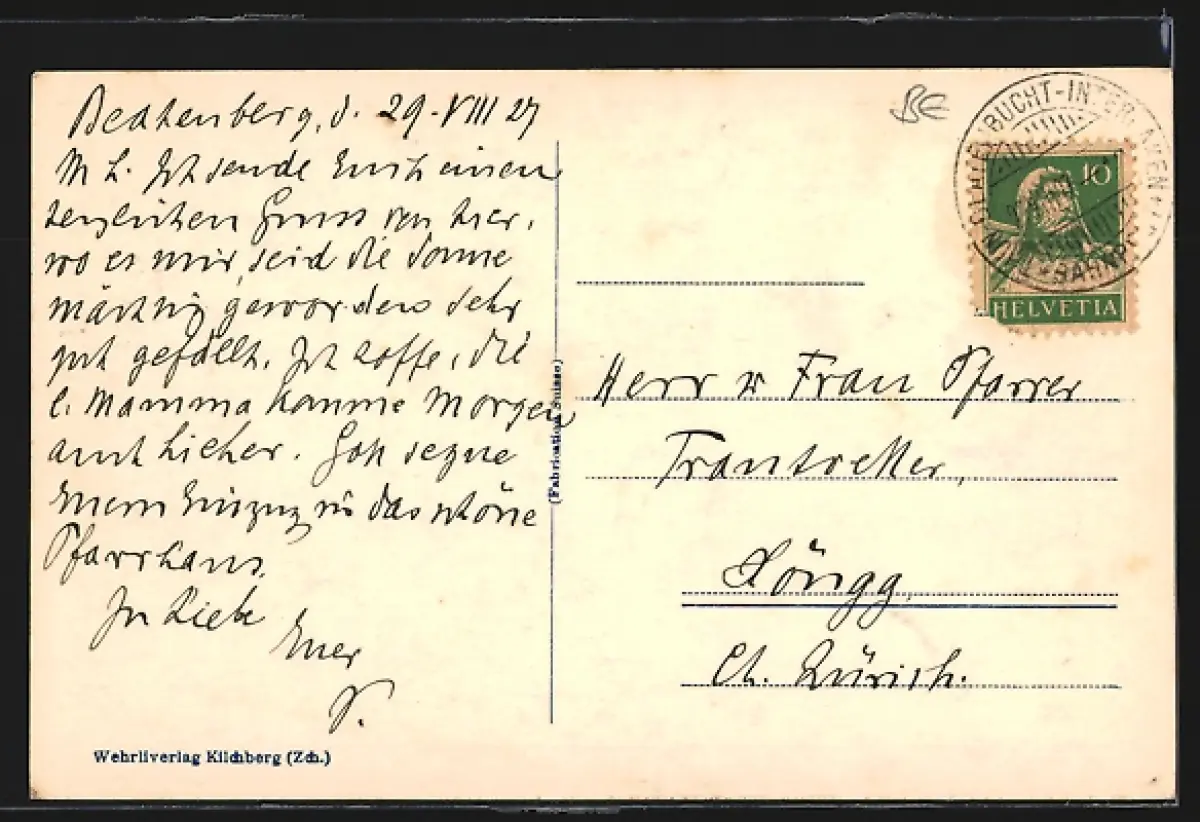 Beatenberg, d. 29. VIII 27
M. L. Ich sende Euch einen
herzlichen Gruss von hier,
wo es mir, seid die Sonne
mächtig geworden sehr
gut gefällt. Ich hoffe, die
l. Mamma komme Morgen
auch hieher. Gott segne
Euern Einzug in das schöne
Pfarrhaus.
In Liebe
Euer
Wehrliverlag Kilchberg (Zch.)
(Fabrication Suisse)
BE
BUCHT-INTERLAKEN
THUN BAHNP
10
HELVETIA
Herr u Frau Pfarrer
Trautvetter,
Höngg,
Ct. Zürich.